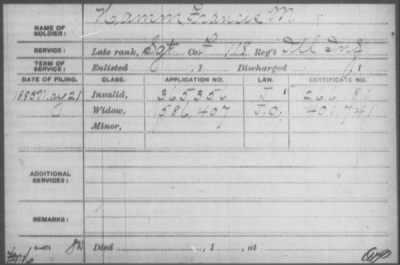 NAME OF SOLDIER: Hamm, Francis M.
SERVICE: Late rank, Sgt Co. 118 Reg't Ill Inf
TERM OF SERVICE: Enlisted , 1 Discharged , 1
DATE OF FILING. CLASS. APPLICATION NO. LAW. CERTIFICATE NO.
1880 May 21 Invalid, 365,356
Widow, 586,407 401,741
Minor,
ADDITIONAL SERVICES:
REMARKS:
Died , 1 , at